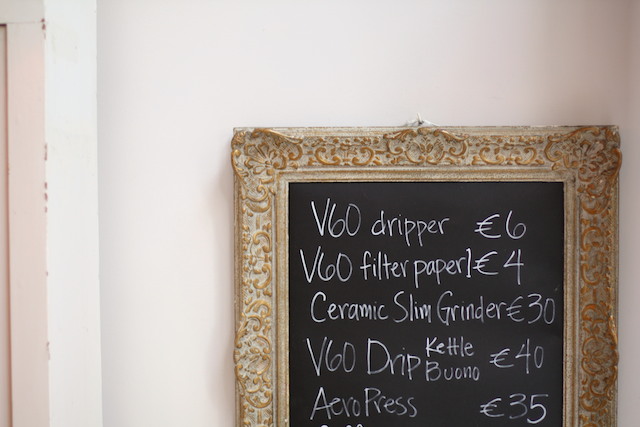 V60 dripper €6
V60 filter paper1 €4
Ceramic Slim Grinder €30
V60 Drip Kettle Buono €40
AeroPress €35